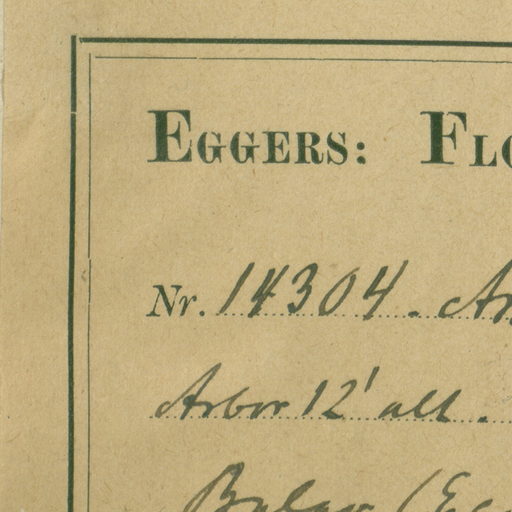 EGGERS: FLO
Nr. 14304. An
Arbor 12' alt.
Balao (Ec